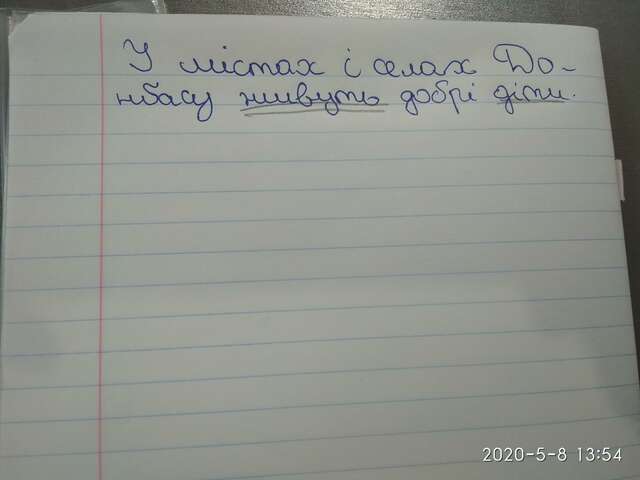 У містах і селах До-
нбасу живуть добрі діти.
2020-5-8 13:54